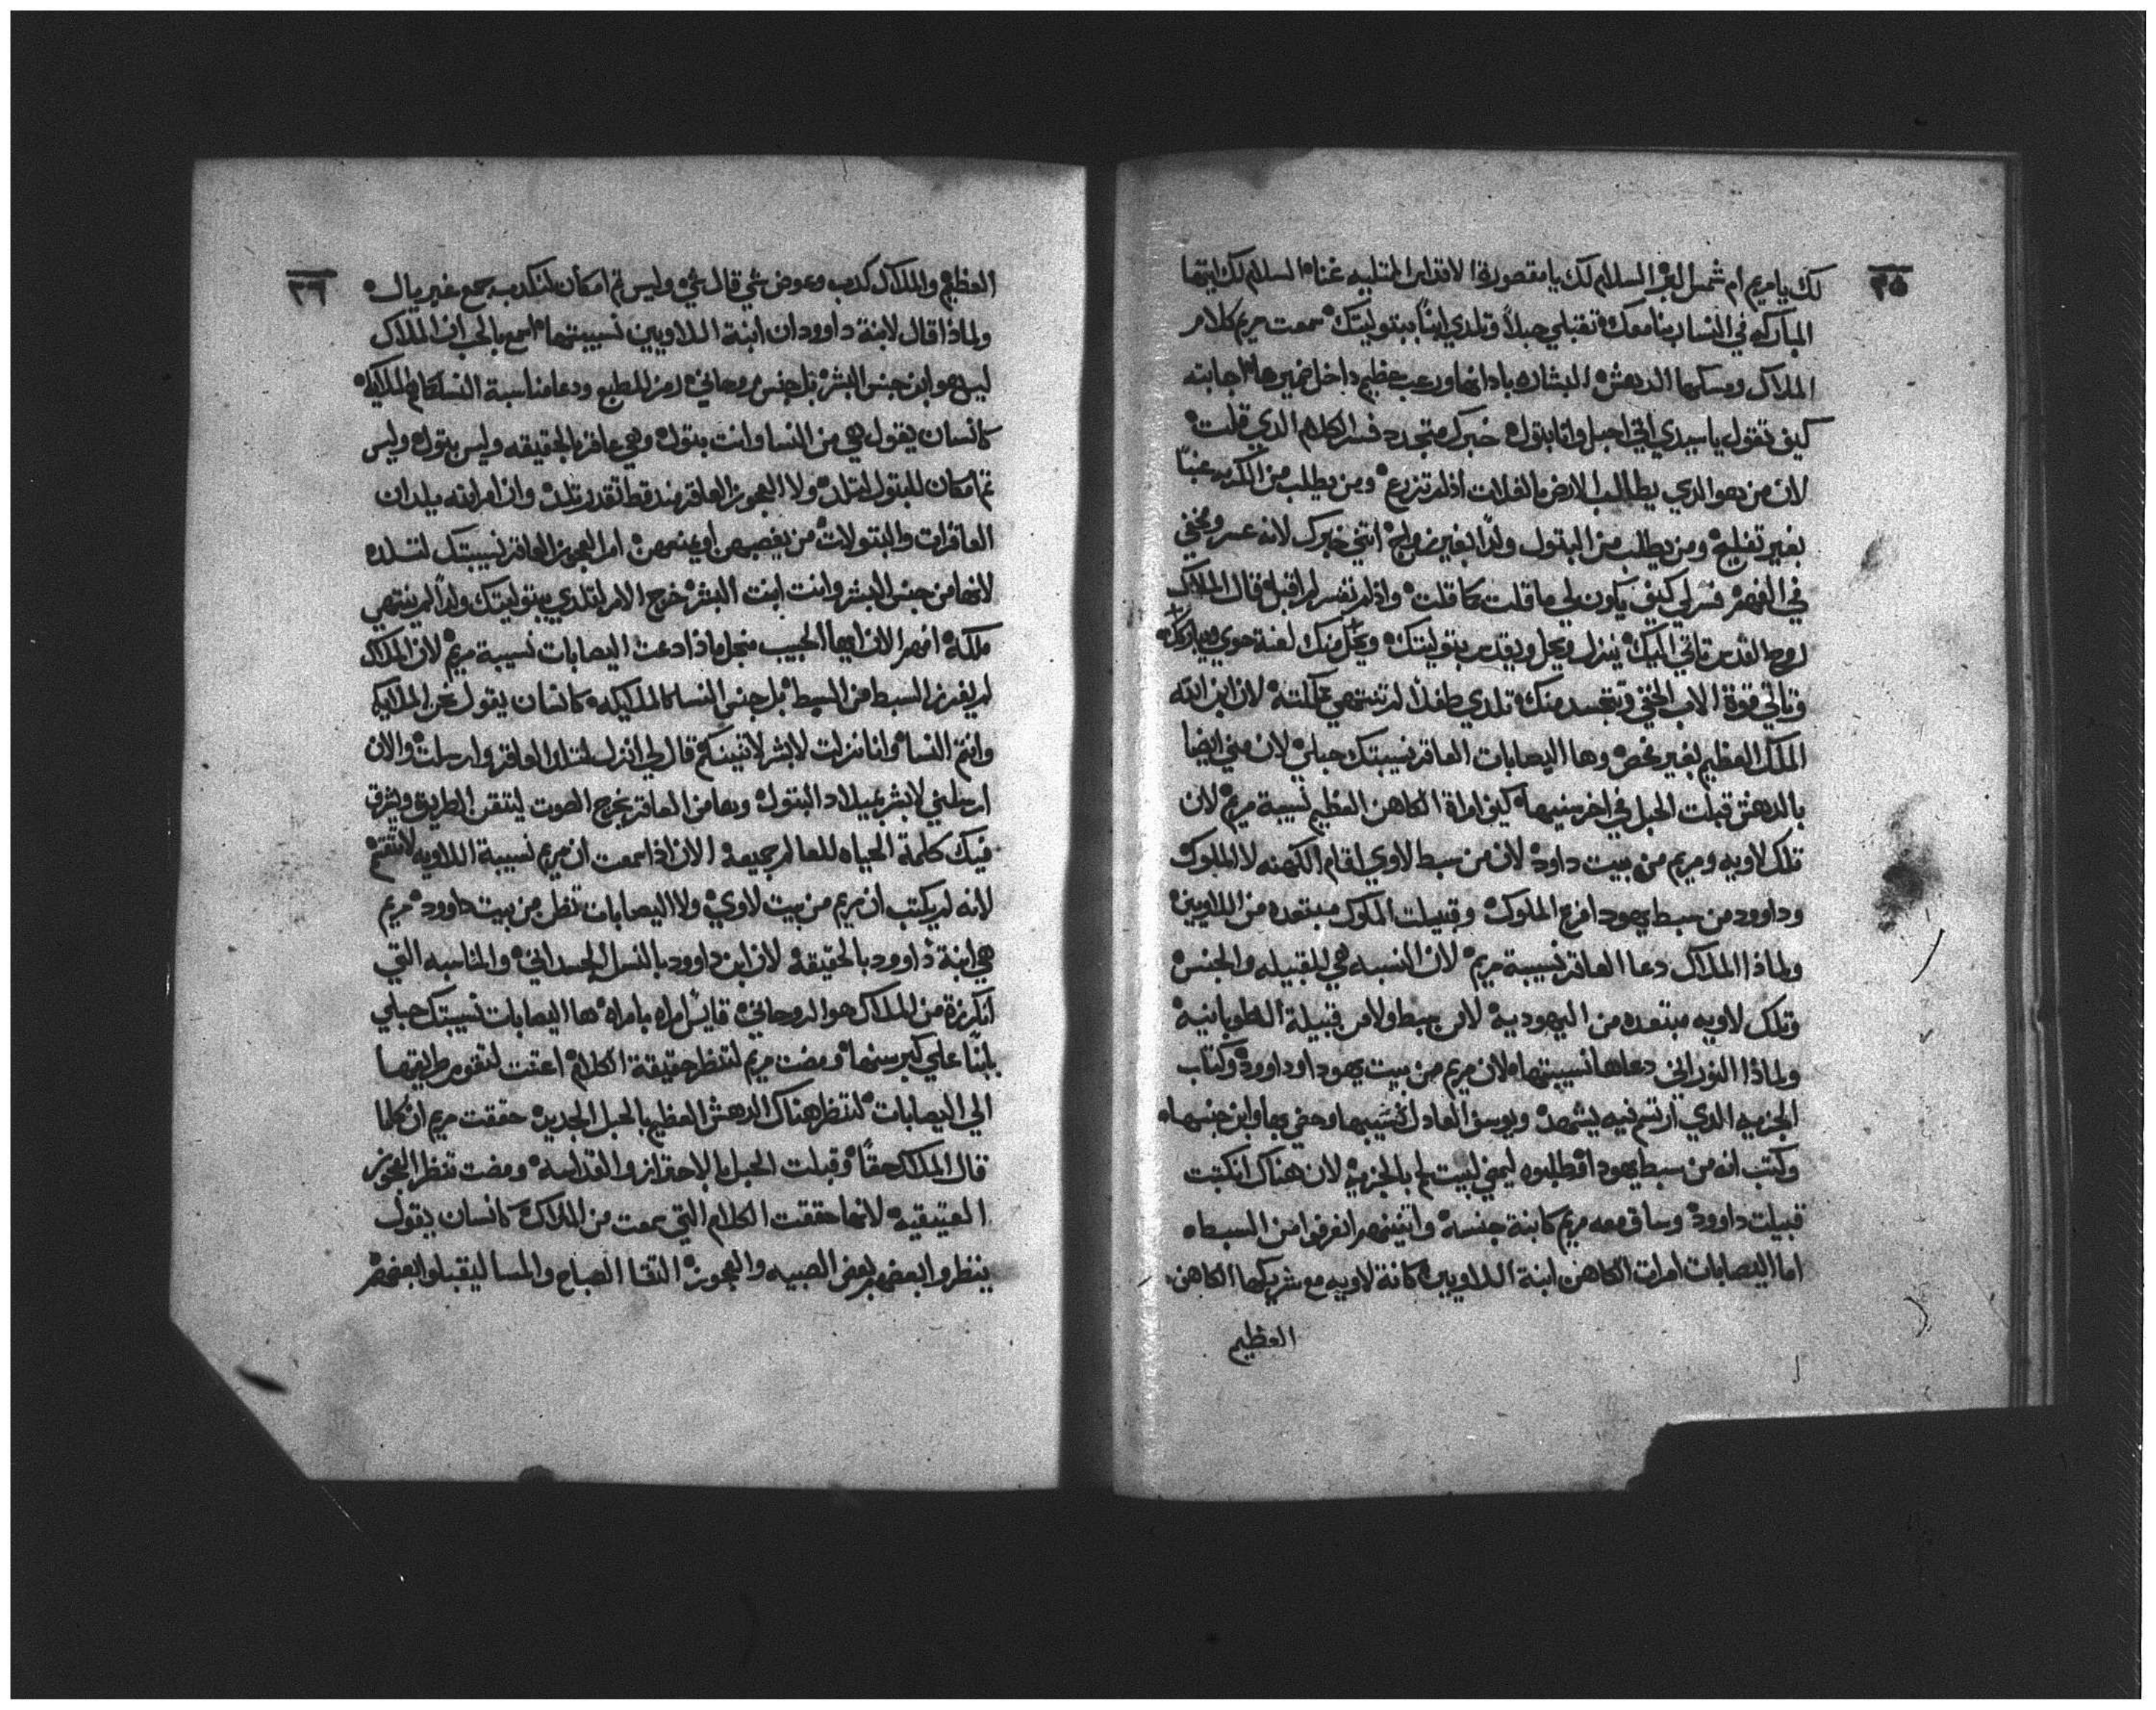 ٣٥
لك يا مريم ام شمس البر السلام لك يا مقصورة الاقداس المتليه غناه السلام لك ايتها
المباركه في النسا ربنا معك تقبلي حبلاً وتلدي ابناً ببتوليتك سمعت مريم كلام
الملاك ومسكها الدهش البشاره باداتها ورعب عظيم داخل ضميرها اجابته
كيف تقول يا سيدي اني احبل وانا بتول خبرك متجدد فسر الكلام الذي قلت
لان من هو الذي يطالب الارض بالغلات اذلم تزرع ومن يطلب من الكرم عنباً
بغير تفليح ومن يطلب من البتول ولداً بغير زواج انتي خبرك لانه عسر ومخفي
في الفهم فسر لي كيف يكون لي ما قلت كما قلت واذلم تفسر لم اقبل قال الملاك
روح القدس تاتي اليك ينزل ويحل ويقدس بتوليتك ويحل منك لعنة حوي ويباركك
وتاتي قوة الاب الخفي وتتجسد منك تلدي طفلاً لم تنتهي مملكته لان ابن الله
الملك العظيم بغير فحص وها اليصابات العاقر نسيبتك حبلي لان هي ايضا
بالدهش قبلت الحبل في اخر سنيها كيف امراة الكاهن العظيم نسيبة مريم لان
تلك لاويه ومريم من بيت داود لان من سبط لاوي اقام الكهنه لا الملوك
وداوود من سبط يهودا فرع الملوك وقبيلت الملوك مبتعده من اللاويين
ولماذا الملاك دعا العاقر نسيبة مريم لان النسبه هي للقبيله والجنس
وتلك لاويه مبتعده من اليهودية لامن سبط ولامن قبيلة الطوبانيه
ولماذا النوراني دعاها نسيبتها لان مريم من بيت يهودا وداوود وكتاب
الجزيه الذي ارتسم فيه يشهد ويوسف العادل نسيبها وحفي بها وابن جنسها
وكتب انه من سبط يهودا فطلبوه ليمضي لبيت لحم بالجزيه لان هناك انكتبت
قبيلت داوود وساق معه مريم كابنة جنسه واتنينهم انفرقوا من السبطاه
اما اليصابات امرات الكاهن ابنة اللاويين كانة لاويه مع شريكها الكاهن
العظيم
٣٦
العظيم والملاك كدب وعوض شي قال شي وليس تم امكان لتكدب سمع غبريال
ولماذا قال لابنة داوود ان ابنة اللاويين نسيبتها اسمع بالحب ان الملاك
ليس هو ابن جنس البشر بل جنس روحاني رمز للطبع ودعا مناسبة النسا كام الملايكه
كانسان يقول هي من النسا وانت بتول وهي عاقر بالحقيقه وليس بتول وليس
تم امكان للبتول لتلد ولا العجوز العاقر مند قط تقدر تلد وان امر انه يلدان
العاقرات والبتولات من يغصبهن او يمنعهن امر العجوز العاقر نسيبتك لتلده
لانها من جنس البشر وانت ابنت البشر خرج الامر لتلدي ببتوليتك ولداً لم ينتهي
ملكه افهم الان ايها الحبيب منجل ماذا دعت اليصابات نسيبة مريم لان الملاك
لم يفرز السبط من السبط بل جنس النسا كالملايكه كانسان يقول نحن الملايكه
وانتم النسا وانا نزلت لابشر لاتنينكم قال لي انزل لتلد العاقر وارسلت والان
ارسلني لابشر بميلاد البتول وها من العاقر يخرج الصوت ليتقن الطريق ويشرق
فيك كلمة الحياه للعالم جميعه الان اذا سمعت ان مريم نسيبة اللاويه لا تغتم
لانه لم يكتب ان مريم من بيت لاوي ولا اليصابات تظن من بيت داوود مريم
هي ابنة داوود بالحقيقه لان ابن داوود بالنسل الجسداني والمناسبه التي
انكرزة من الملاك هو الروحاني قايس امراه بامراه ها اليصابات نسيبتك حبلي
بابناً علي كبر سنها ومضت مريم لتنظر حقيقة الكلام اعتقت لتقوم طريقها
الي اليصابات لتنظر هناك الدهش العظيم بالحبل الجديد حققت مريم ان كلما
قال الملاك حقاً وقبلت الحبل بالاحقراز والقداسه ومضت تنظر العجوز
العتيقيه لانها حققت الكلام التي سمعت من الملاك كانسان يقول
ينظروا بعضهم بعض الصبيه والعجوزه التقا الصباح والمسا ليقبلوا بعضهم